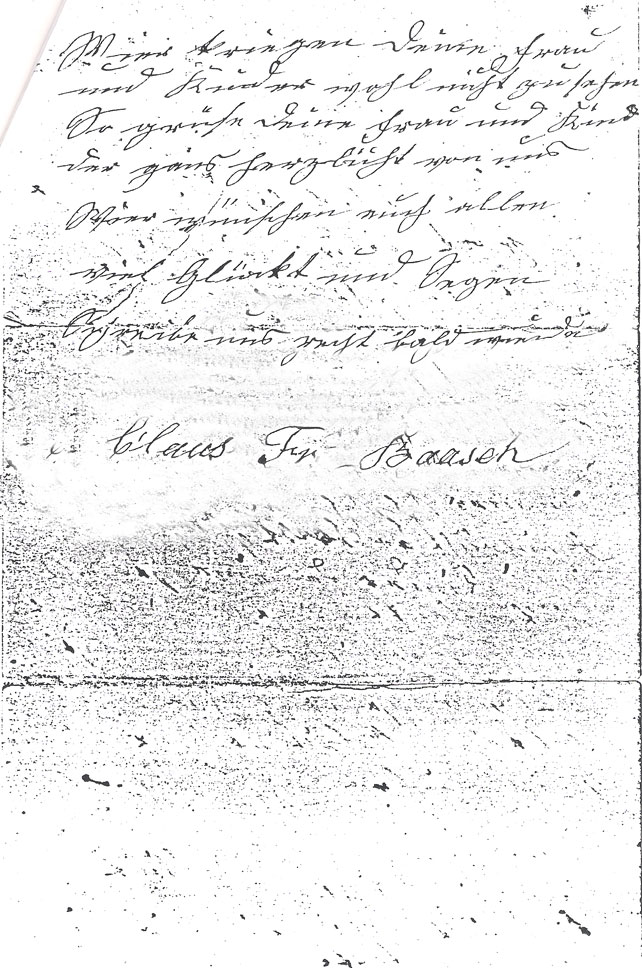 Wier kriegen deine Frau
und Kinder wohl nicht zu sehen
So grüse deine Frau und Kind
der gans herzlicht von uns
Wier wünschen euch allen
viel Glückt und Segen
Schreibe uns recht bald wieder
Claus Fr Baasch